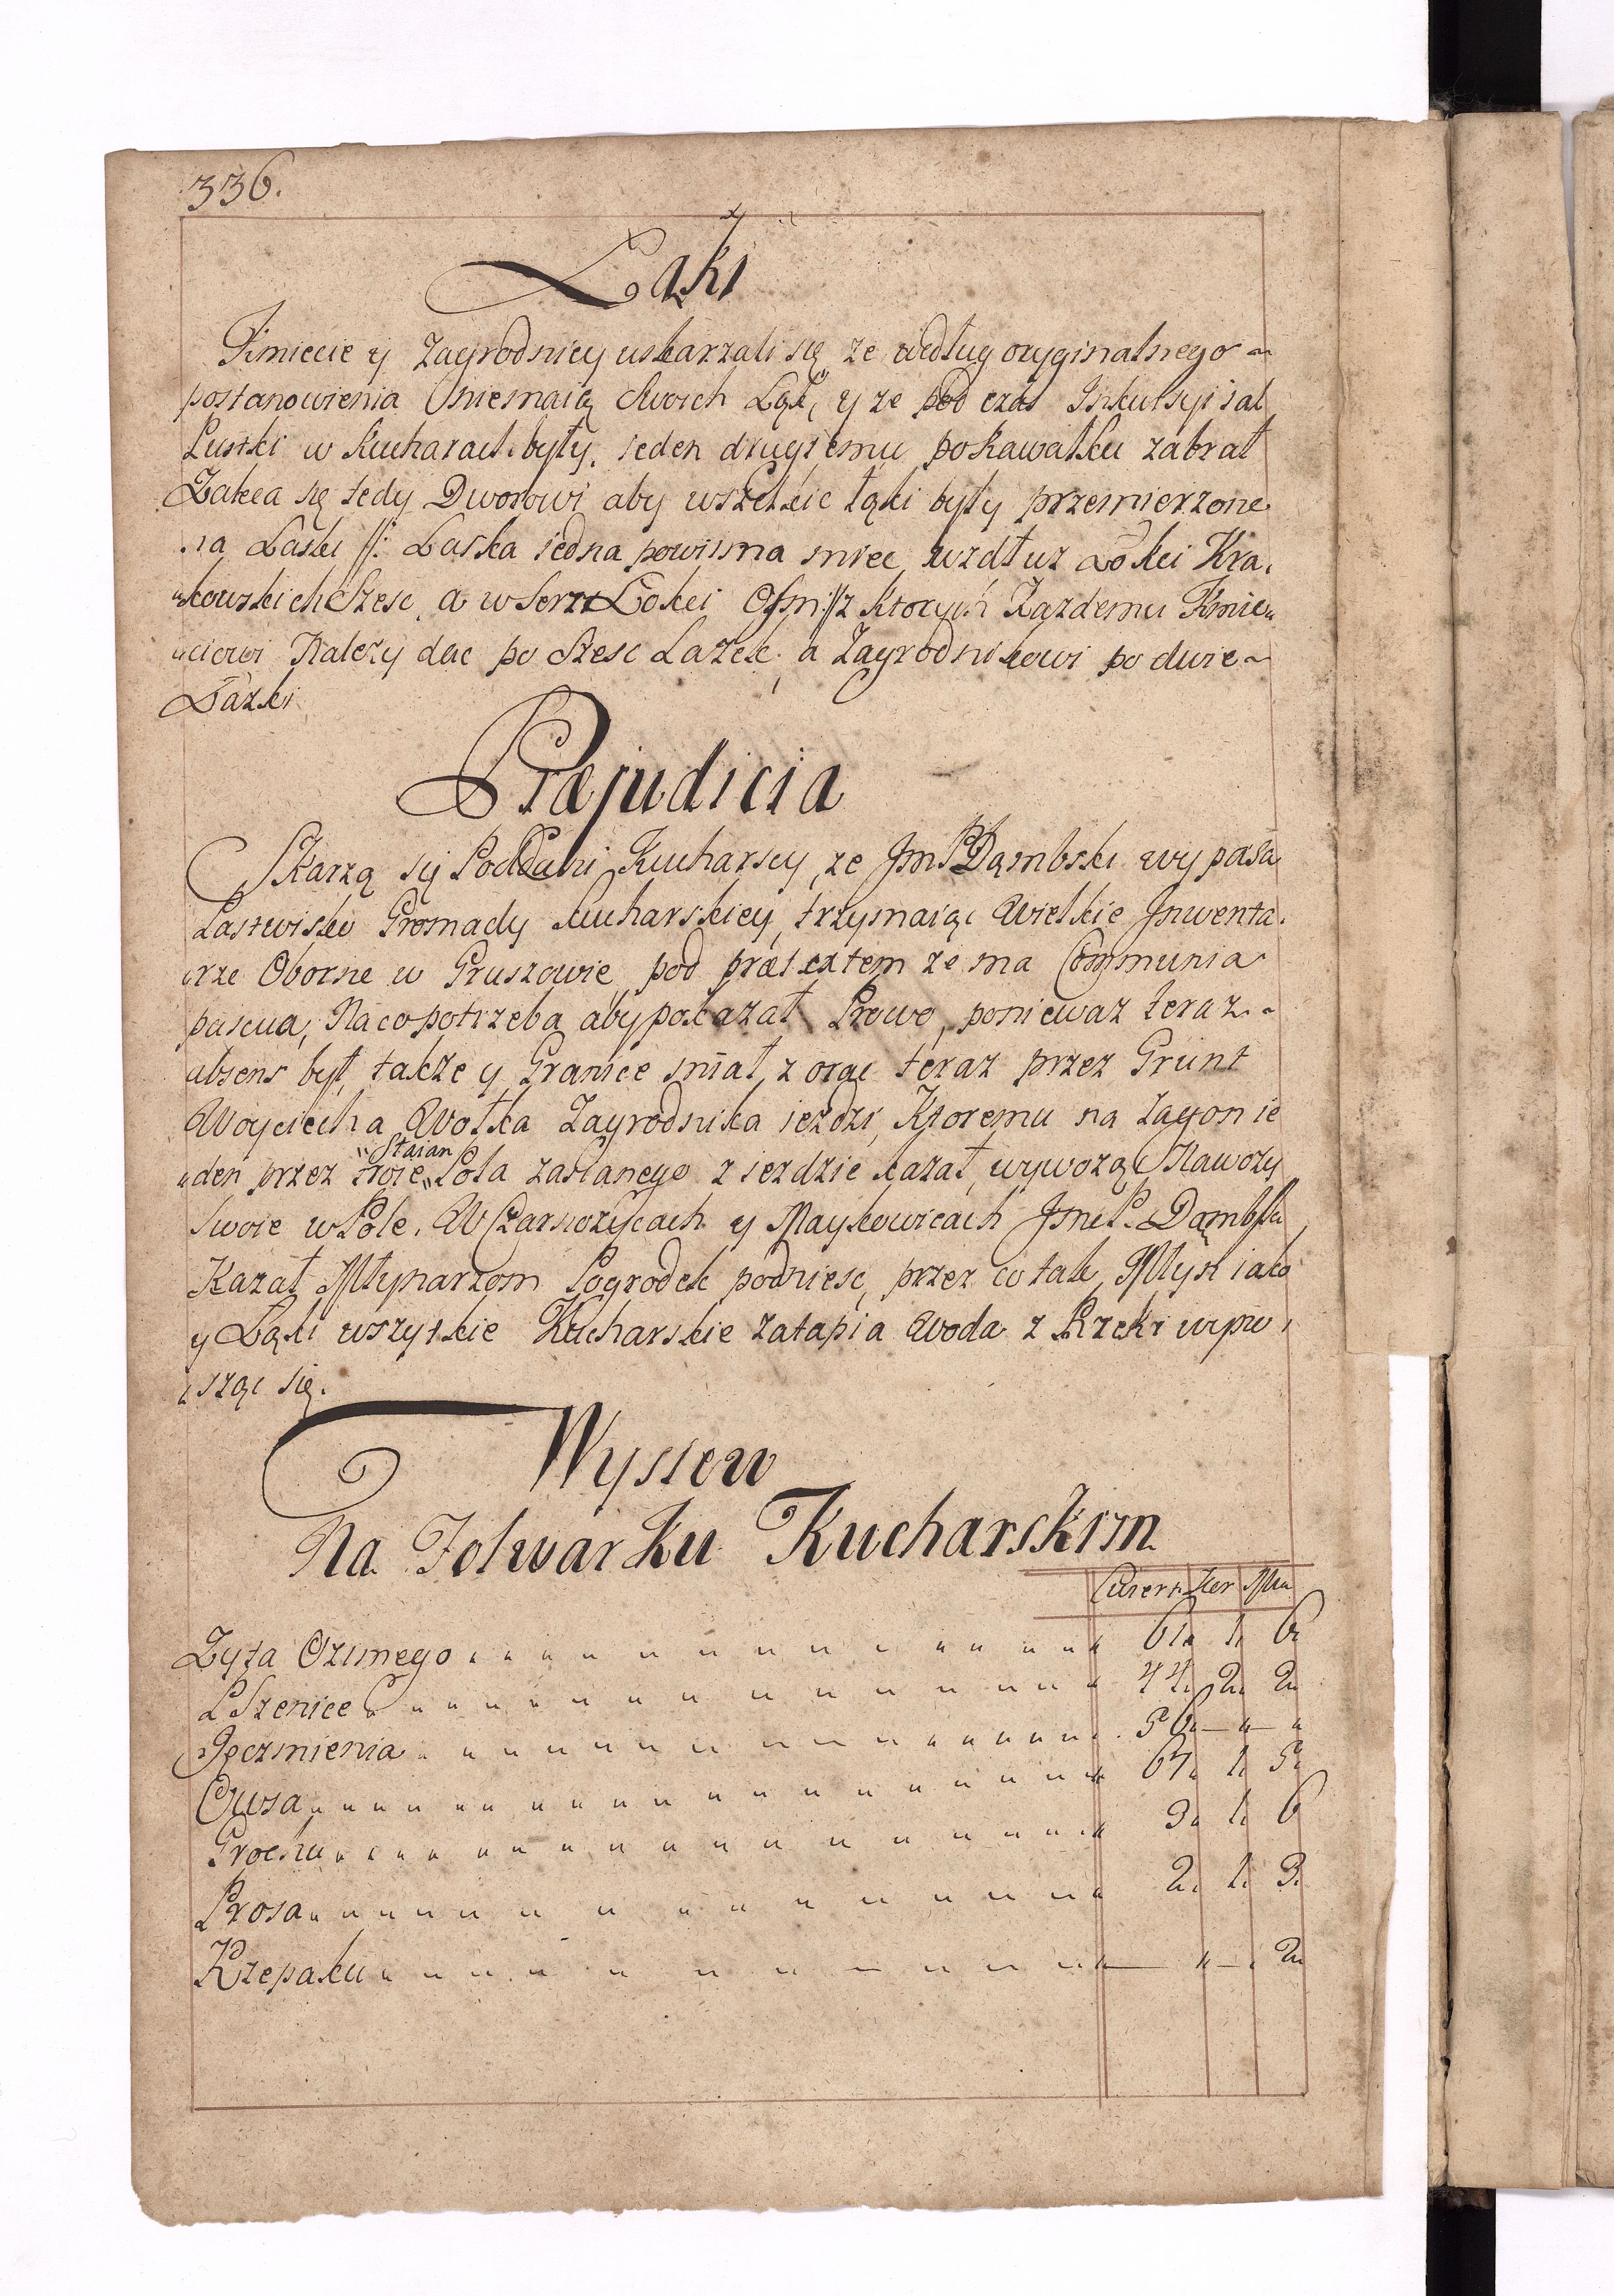 336.
Łąki
Kmiecie y Zagrodnicy uskarzali się ze według oryginalnego
postanowienia niemaią Swoich Łąk, y ze pod czas Inkursyi iak
Pustki w Kucharach były, ieden drugiemu po kawałku zabrał
Zaleca się tedy Dworowi aby wszelkie łąki były przemierzone
na Laski //: Laska iedna powinna miec wzdłuz Łokci Kra,
„kowskich Szesc, a wserz Łokci Osm :// z ktorych Kazdemu Kmie„
„ciowi Nalezy dac po Szesc Lazek, a Zagrodnikowi po dwie
Lazki
Præjudicia
Skarzą się Poddani Kucharscy, ze Jm P Dąmbski wypasa
Pastwisko Gromady Kucharskiey, trzymaiąc Wielkie Inwenta,
„rze Oborne w Gruszowie, pod prætextem ze ma Communia
pascua, Na co potrzeba aby pokazał Prawo, poniewaz teraz
absens był, takze y Granice miał zorac teraz przez Grunt
Woyciecha Wołka Zagrodnika iezdzi, Ktoremu na Zagon ie
„den przez troie „Staian Pola zasianego ziezdzic kazał, wywozą Nawozy
Swoie w Pole. W Czarnozycach y Maykowicach Jme P. Dąmbski
Kazał Młynarzom Pogrodek podniesc, przez co tak Młyn iako
y Łąki wszytkie Kucharskie zatapia Woda z Rzeki wpu,
„sząc się.
Wyssew
Na Folwarku Kucharskim
Cwiertn Kor Mia
Zyta Ozimego 61 1 6
PSzenice 44 2 2
Jęczmienia 56 — „ — „
Owsa 67 1 5
Grochu 3 1 6
Prosa 2 1 3
Rzepaku — „ — 2